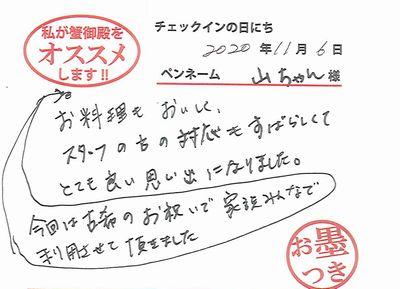 私が蟹御殿を
オススメ
します!!
チェックインの日にち
2020年11月6日
ペンネーム 山ちゃん様
お料理もおいしく、
スタッフの方の対応もすばらしくて
とても良い思い出になりました。
今回は古希のお祝いで家族みんなで
利用させて頂きました
お墨
つき